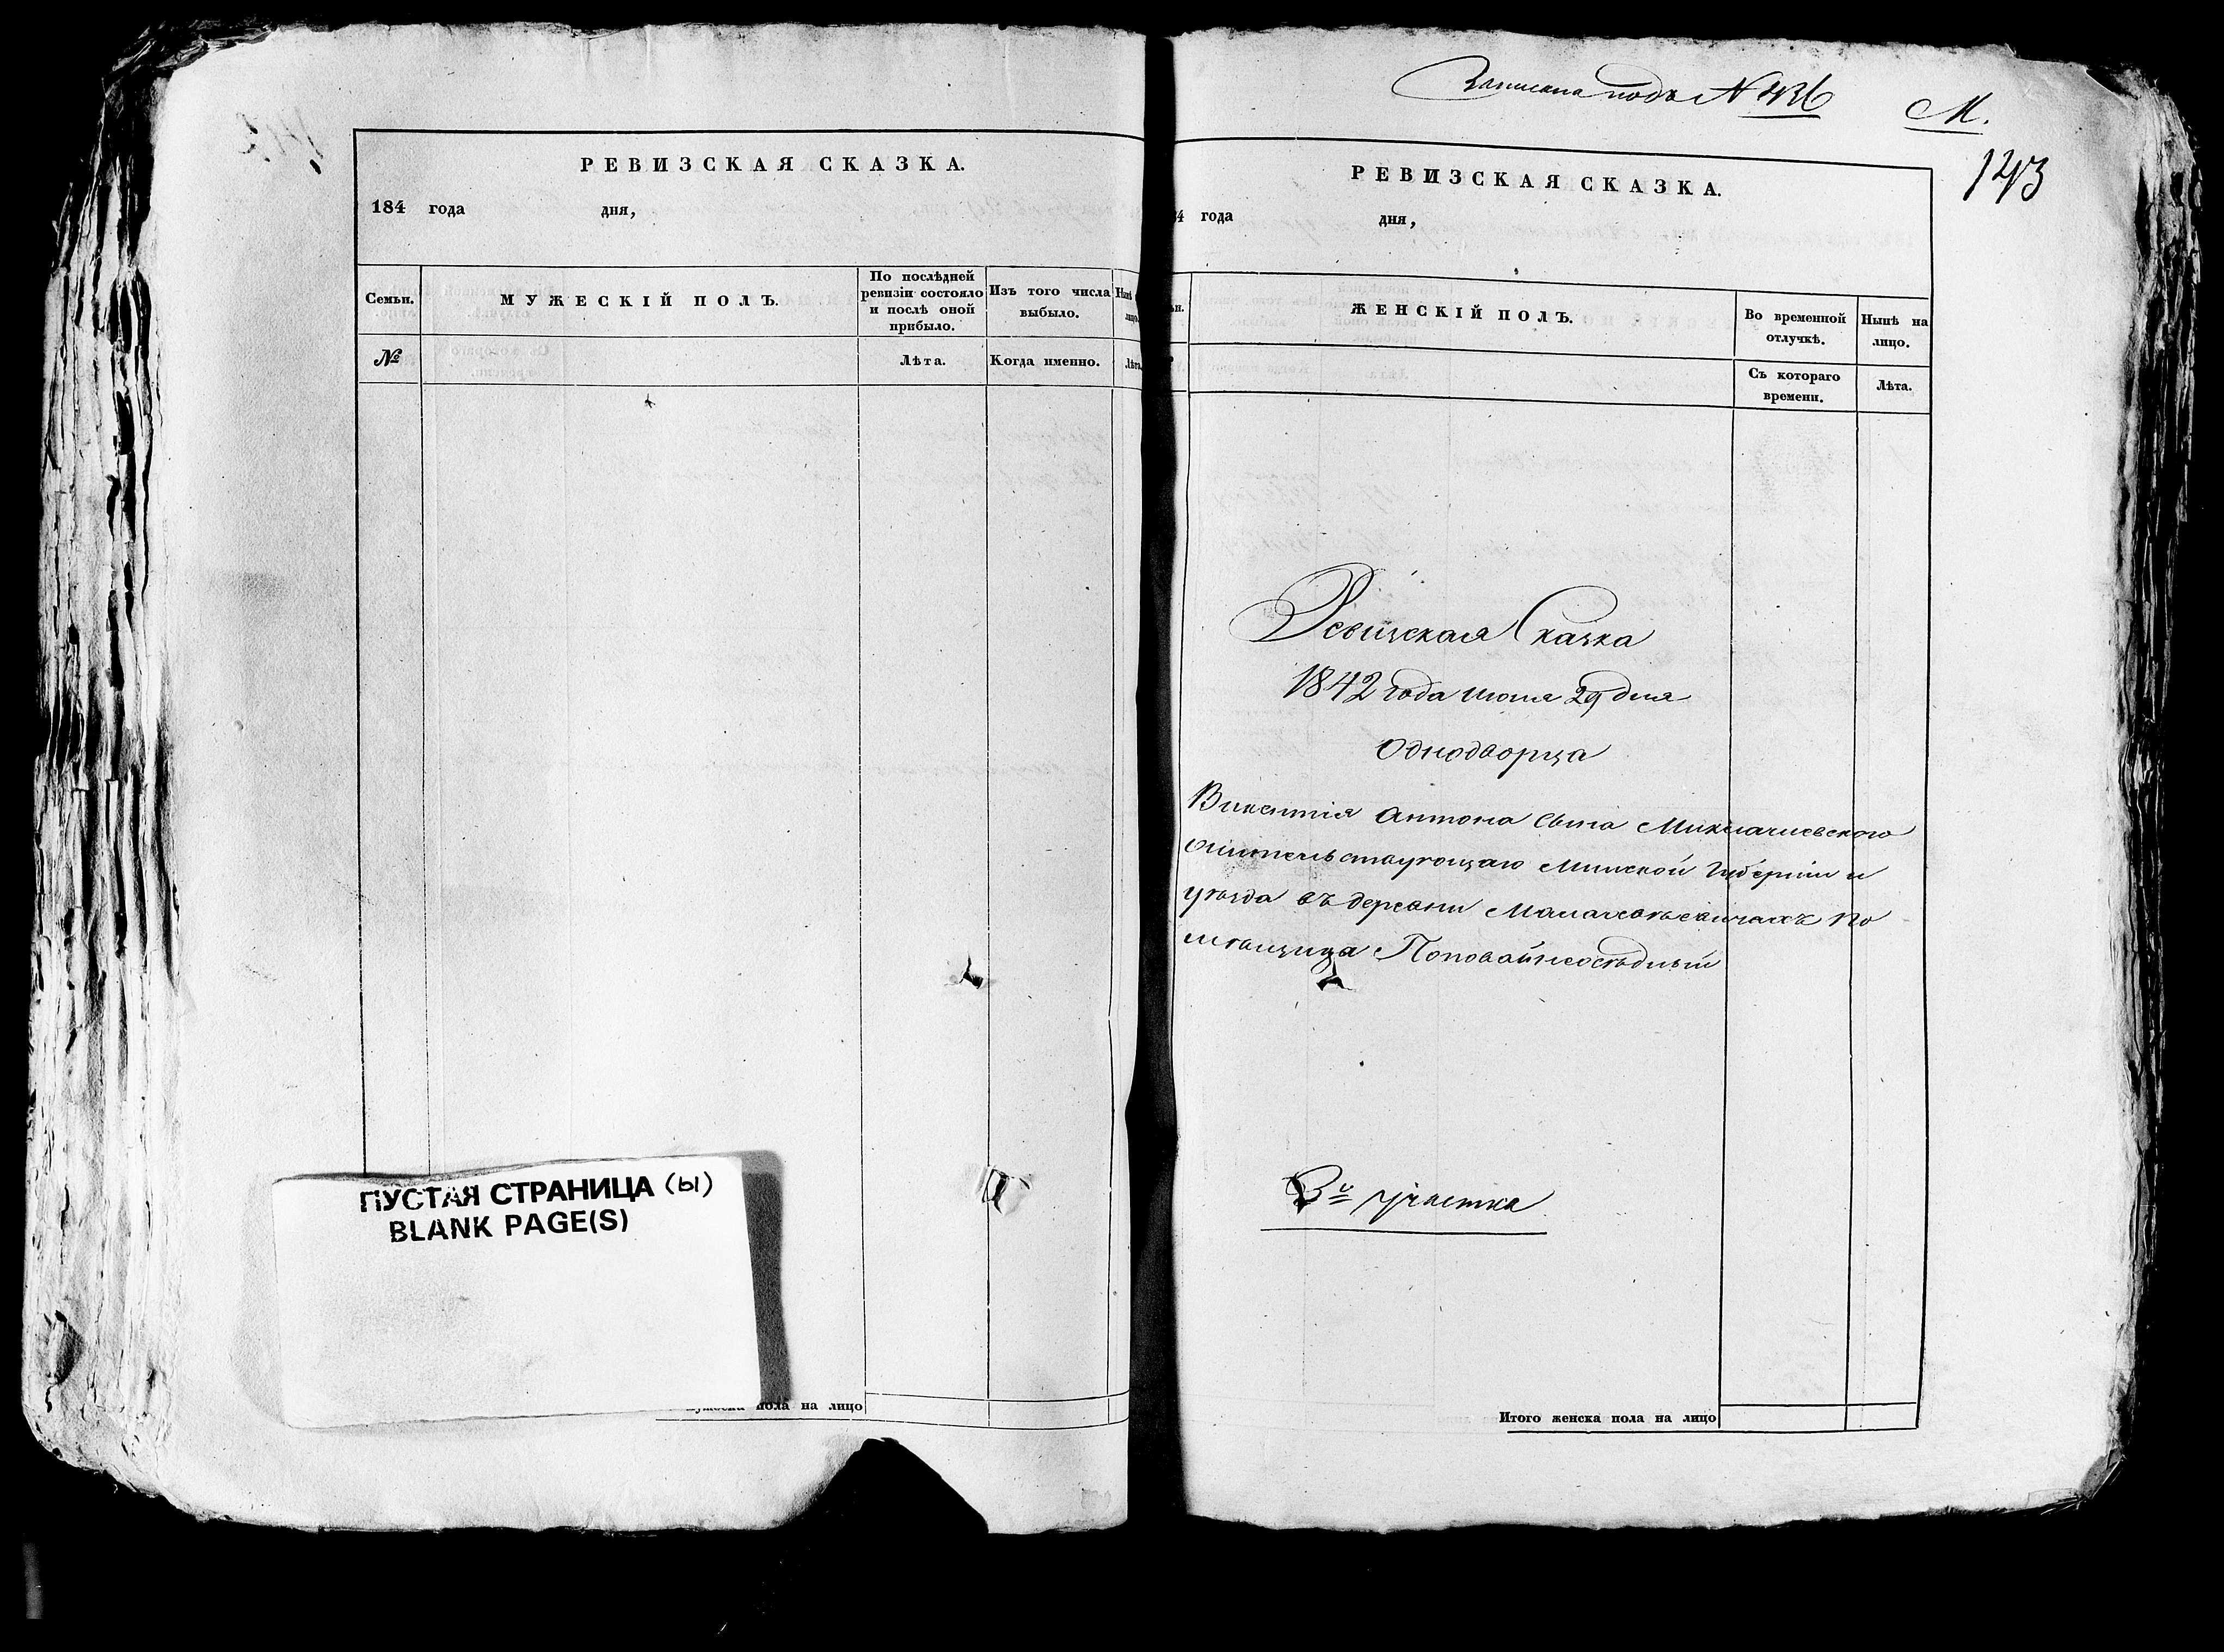 РЕВИЗСКАЯ СКАЗКА.
184 года дня,
Семьи.
МУЖЕСКІЙ ПОЛЪ.
По послѣдней
ревизіи состояло
и послѣ оной
прибыло.
Изъ того числа
выбыло.
№
Лѣта.
Когда именно.
Лѣта.
ПУСТАЯ СТРАНИЦА (ы)
BLANK PAGE(S)
пола на лицо
Записана подъ № 436
М.
143
РЕВИЗСКАЯ СКАЗКА.
4 года дня,
ЖЕНСКІЙ ПОЛЪ.
Во временной
отлучкѣ.
Нынѣ на
лицо.
Съ котораго
времени.
Лѣта.
Ревизская Сказка
1842 года июня 29 дня
Однодворца
Викентія Антона Сына
жительствующаго Минской Губерніи и
уѣзда въ деревни По
мѣщица Неосѣдлый
3й участка
Итого женска пола на лицо